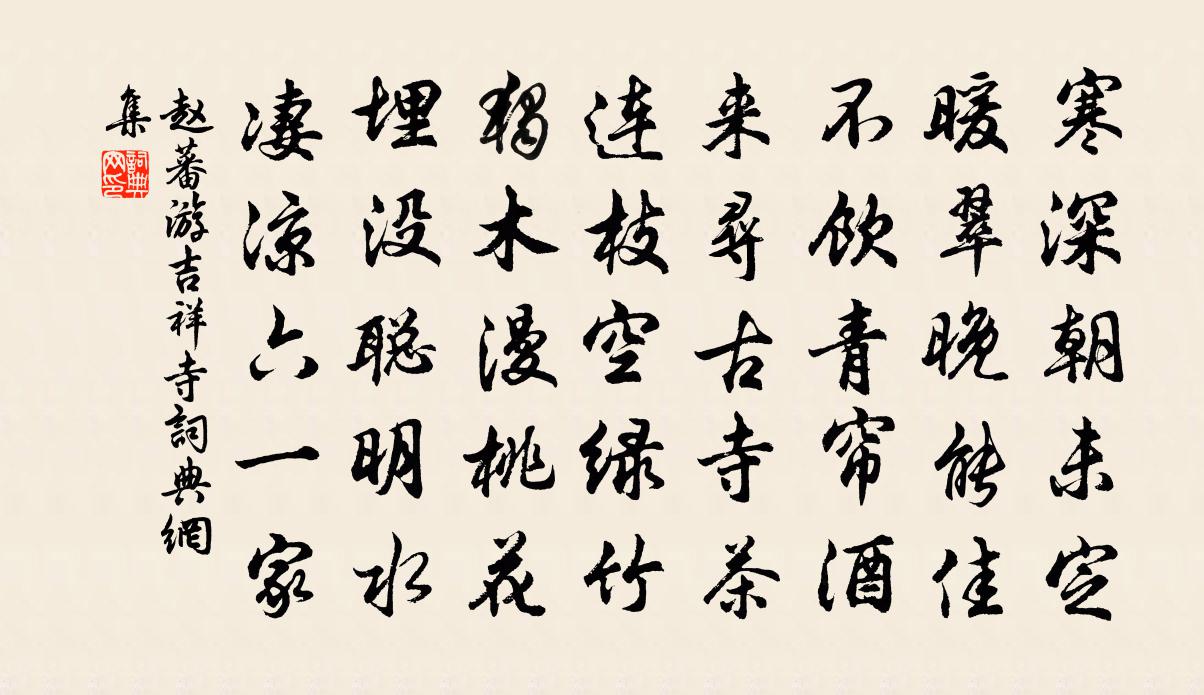 寒深朝未定
暖翠晚能佳
不飲青帘酒
来尋古寺茶
连枝空绿竹
独木漫桃花
埋没聪明水
凄凉六一家
赵蕃游吉祥寺詞典網
集
詞典
网印